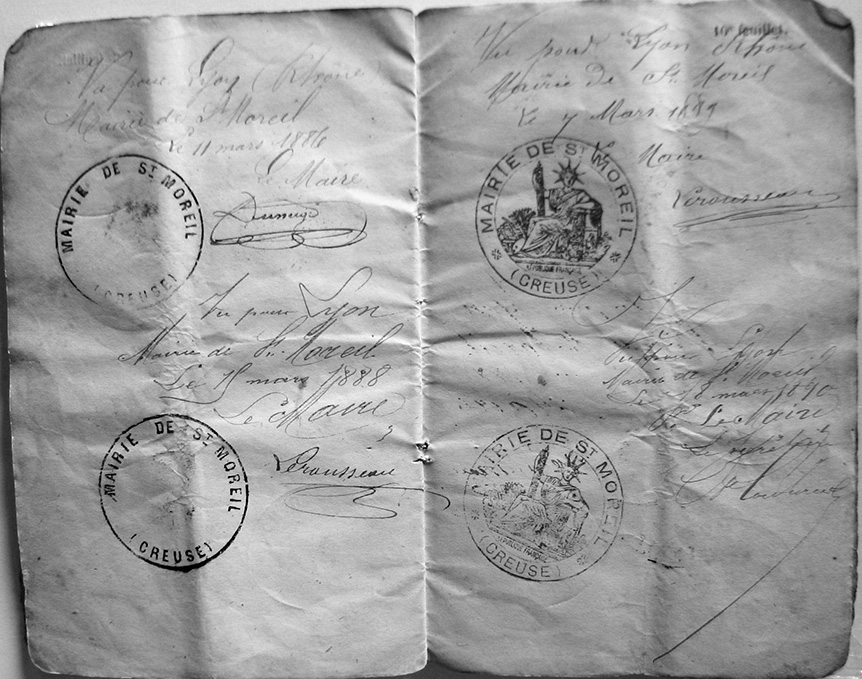 Vu pour Lyon (Rhône)
Mairie de St Moreil
Le 11 mars 1886
Le Maire
MAIRIE DE ST MOREIL
(CREUSE)
Vu pour Lyon
Mairie de St Moreil
Le 15 mars 1888
Le Maire
Lerousseau
MAIRIE DE ST MOREIL
(CREUSE)
10e feuillet.
Vu pour Lyon Rhône
Mairie de St Moreil
Le 7 Mars 1889
Le Maire
Lerousseau
MAIRIE DE ST MOREIL
RÉPUBLIQUE FRANÇAISE
(CREUSE)
Vu pour Lyon
Mairie de St Moreil
Le 8 mars 1890
Le Maire
MAIRIE DE ST MOREIL
RÉPUBLIQUE FRANÇAISE
(CREUSE)